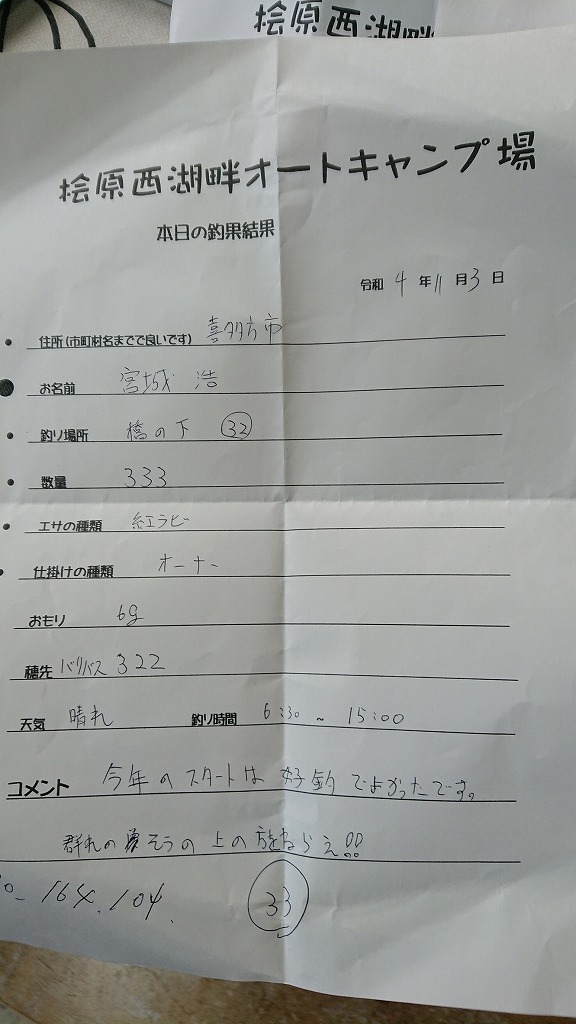 桧原西湖畔
桧原西湖畔オートキャンプ場
本日の釣果結果
令和 4 年 11 月 3 日
住所(市町村名までで良いです) 喜多方市
お名前 宮城 浩
釣り場所 橋の下 ㉜
数量 333
エサの種類 紅ラビ
仕掛けの種類 オーナー
おもり 6g
穂先 バリバス 322
天気 晴れ 釣り時間 6:30 ~ 15:00
コメント 今年のスタートは好釣でよかったです。
群れの そうの上の方をねらえ!!
164. 104. 33